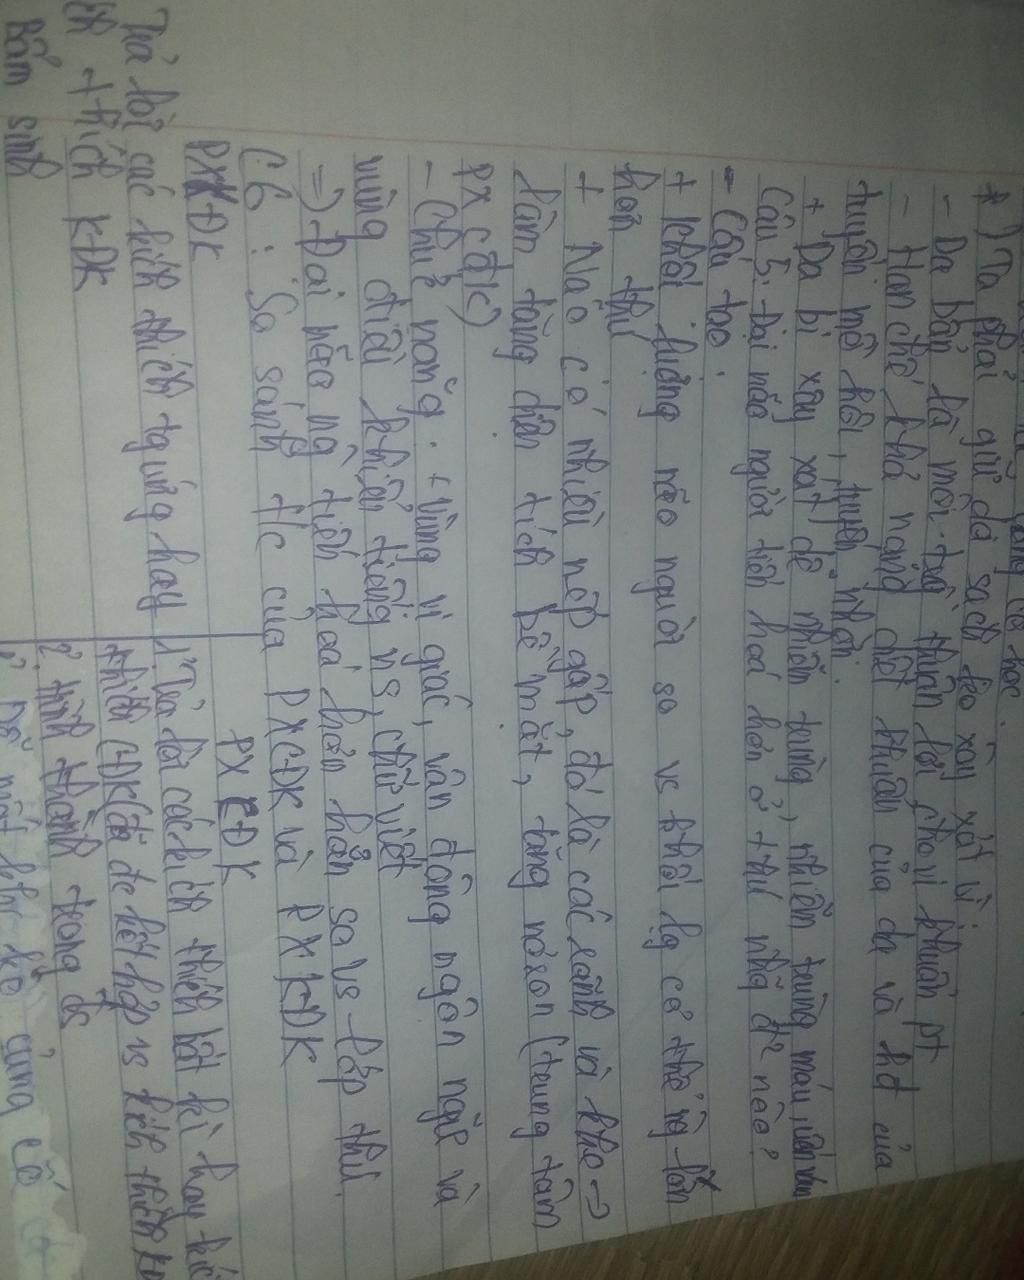 *) Ta phải giữ da sạch, tránh xây xát vì:
- Da bẩn là môi trường thuận lợi cho vi khuẩn pt
- Hạn chế khả năng diệt khuẩn của da và hđ của
tuyến mồ hôi, tuyến nhờn.
+ Da bị xây xát dễ nhiễm trùng, nhiễm trùng máu, uốn ván
Câu 5: Đại não người tiến hoá hơn ở thú những đ² nào?
- Cấu tạo:
+ Khối lượng não người so vs khối lg cơ thể ng lớn
hơn thú
+ Não có nhiều nếp gấp, đó là các rãnh và khe →
làm tăng diện tích bề mặt, tăng nơron (trung tâm
PX CĐK)
- Chức năng: + Vùng vị giác, vận động ngôn ngữ và
vùng điều khiển tiếng ns, chữ viết
=> Đại não ng tiến hoá hơn hẳn so vs lớp thú.
C6: So sánh t/c của PXCĐK và PXKĐK
PXKĐK PXCĐK
Trả lời các kích thích tg ứng hay 1' Trả lời các kích thích bất kì hay kích
thích KĐK thích CĐK (đã đc kết hợp vs kích thích KĐ
Bẩm sinh 2' Hình thành trong đs
3' Dễ mất khi ko củng cố